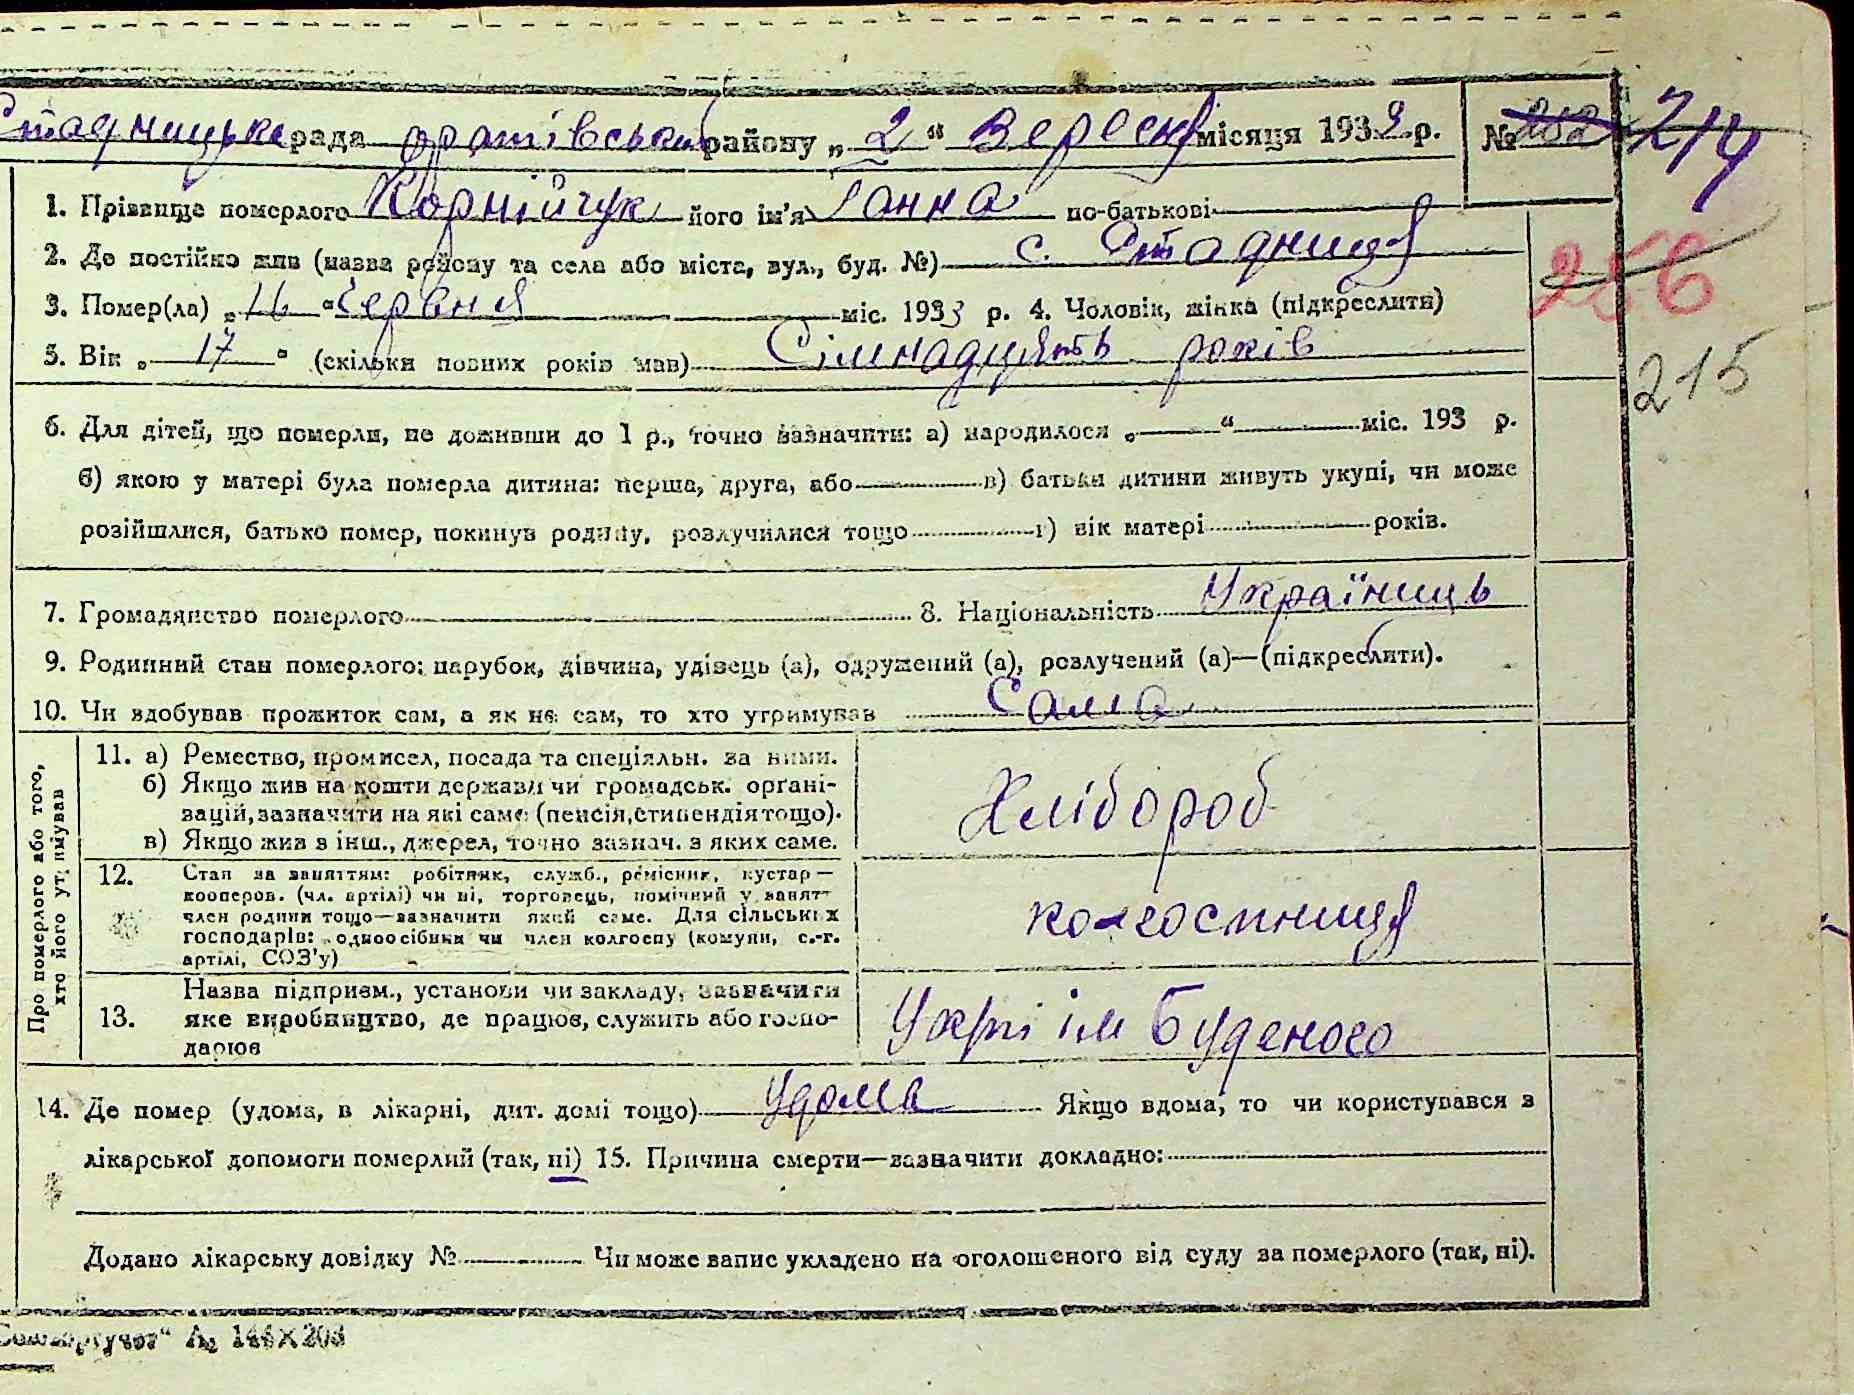 Стадницька рада Оратівський району „ 2 “ Вересня місяця 193 р. № 202 214
1. Прізвище померлого Корнійчук його ім'я Ганна по-батькові
2. Де постійно жив (назва району та села або міста, вул., буд. №) с. Стадниця
256
3. Помер(ла) „ 16 “ Червня міс. 1933 р. 4. Чоловік, жінка (підкреслити)
5. Вік „ 17 “ (скільки повних років мав) Сімнадцять років
215
6. Для дітей, що померли, не доживши до 1 р., точно зазначити: а) народилося „ “ міс. 193 р.
б) якою у матері була померла дитина: перша, друга, або в) батьки дитини живуть укупі, чи може
розійшлися, батько помер, покинув родину, розлучилися тощо г) вік матері років.
7. Громадянство померлого 8. Національність Україниць
9. Родинний стан померлого: парубок, дівчина, удівець (а), одружений (а), розлучений (а)—(підкреслити).
10. Чи здобував прожиток сам, а як не сам, то хто утримував Сама
Про померлого або того,
хто його утримував
11. а) Ремество, промисел, посада та спеціяльн. за ними.
б) Якщо жив на кошти держави чи громадськ. орґані-
зацій, зазначити на які саме (пенсія, стипендія тощо).
в) Якщо жив з інш., джерел, точно зазнач. з яких саме.
Хлібороб
12. Стан за заняттям: робітник, служб., ремісник, кустар—
кооперов. (чл. артілі) чи ні, торговець, помічний у занятт
член родини тощо—зазначити який саме. Для сільських
господарів: одноосібник чи член колгоспу (комуни, с.-г.
артілі, СОЗ'у)
колгоспниця
13. Назва підприєм., установи чи закладу, зазначити
яке виробництво, де працює, служить або госпо-
дарює
ім Буденого
14. Де помер (удома, в лікарні, дит. домі тощо) Удома Якщо вдома, то чи користувався з
лікарської допомоги померлий (так, ні) 15. Причина смерти—зазначити докладно:
Додано лікарську довідку № Чи може запис укладено на оголошеного від суду за померлого (так, ні).
144×203